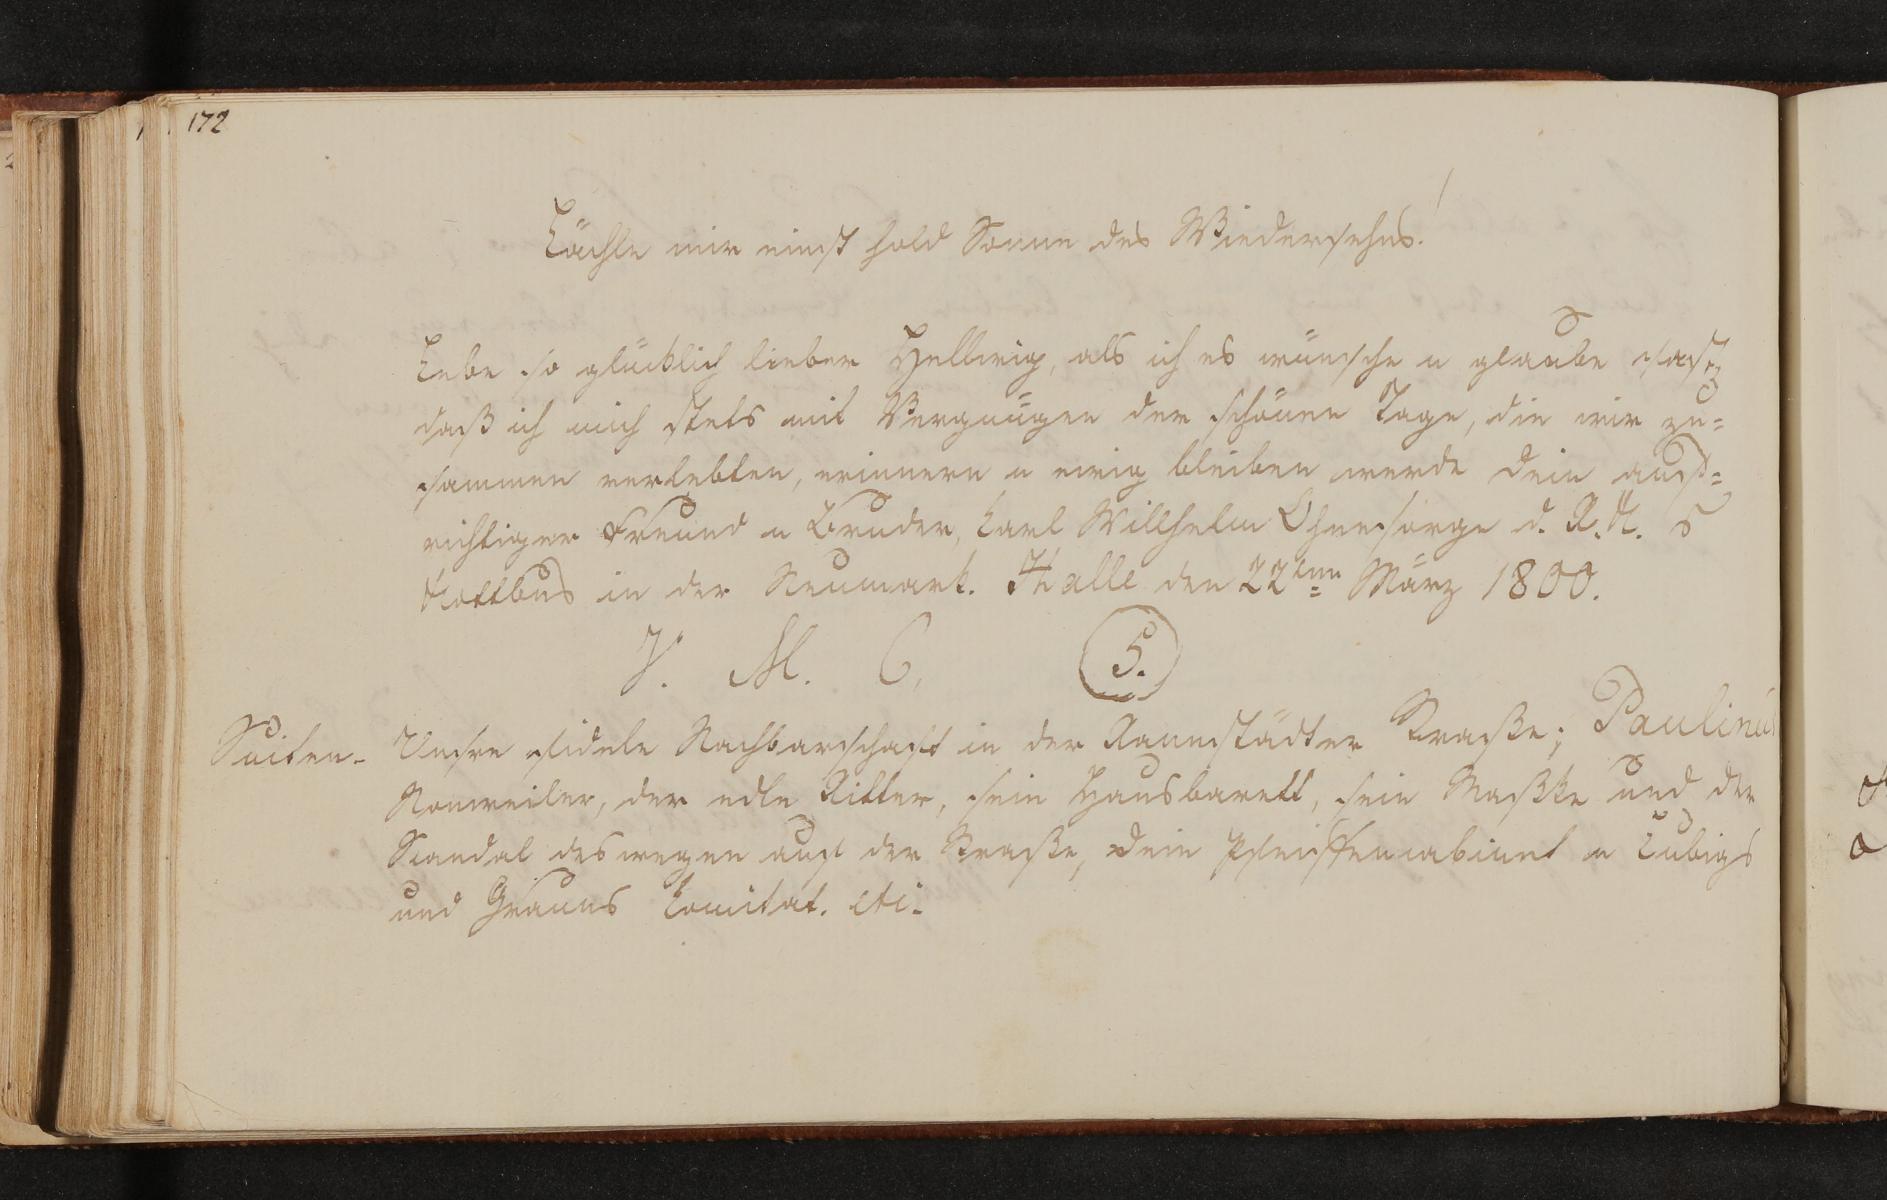 172
Lächle mir einst hold Sonne des Wiedersehns!
Lebe so glücklich lieber Hellwig, als ich es wünsche u glaube fest,
daß ich mich stets mit Vergnügen der schönen Tage, die wir zu=
sammen verlebten, erinnern u ewig bleiben werde Dein auf=
richtiger Freund u Bruder, Karl Willhelm Ohnesorge d. R. B.
Kottbus in der Neumark. Halle den 22ten März 1800.
V. M. C. 5.
Suiten. Unsre fidele Nachbarschaft in der Rannstädter Straße; Paulinus
Nonweiler, der edle Ritter, sein Hausbarett, sein Maßke und der
Scandal deswegen auf der Straße, Dein Pfeiffencabinet u Lubigs
und Grauns Comitat. etc.